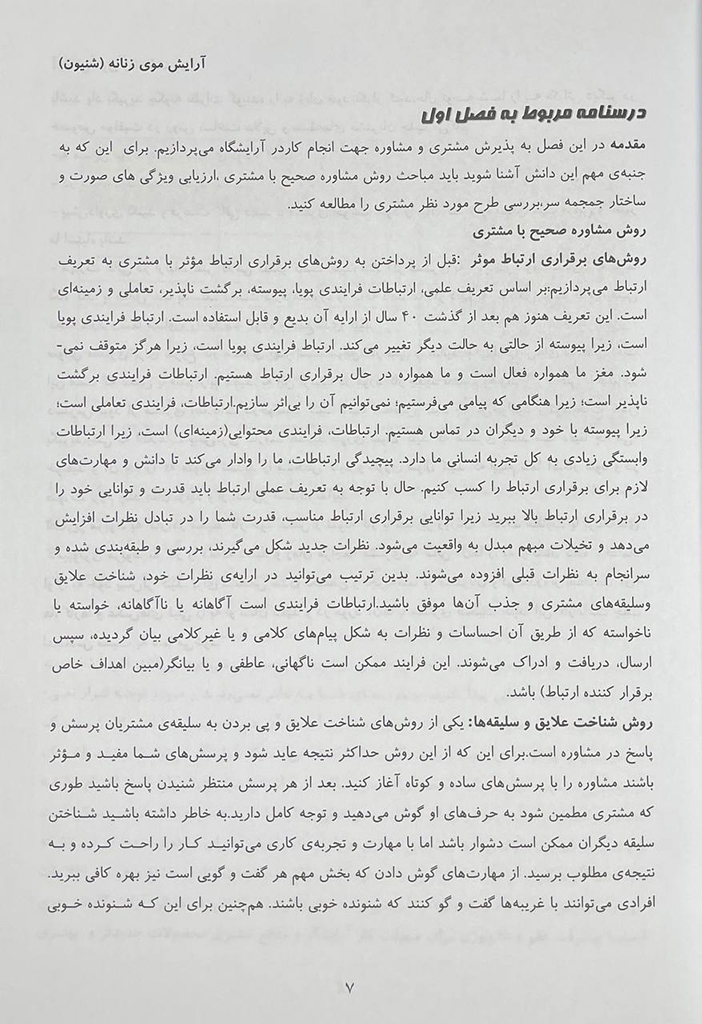 آرایش موی زنانه (شنیون)
درسنامه مربوط به فصل اول
مقدمه در این فصل به پذیرش مشتری و مشاوره جهت انجام کاردر آرایشگاه می‌پردازیم. برای این که به
جنبه‌ی مهم این دانش آشنا شوید باید مباحث روش مشاوره صحیح با مشتری ،ارزیابی ویژگی های صورت و
ساختار جمجمه سر،بررسی طرح مورد نظر مشتری را مطالعه کنید.
روش مشاوره صحیح با مشتری
روش‌های برقراری ارتباط موثر :قبل از پرداختن به روش‌های برقراری ارتباط مؤثر با مشتری به تعریف
ارتباط می‌پردازیم:بر اساس تعریف علمی، ارتباطات فرایندی پویا، پیوسته، برگشت ناپذیر، تعاملی و زمینه‌ای
است. این تعریف هنوز هم بعد از گذشت ۴۰ سال از ارایه آن بدیع و قابل استفاده است. ارتباط فرایندی پویا
است، زیرا پیوسته از حالتی به حالت دیگر تغییر می‌کند. ارتباط فرایندی پویا است، زیرا هرگز متوقف نمی-
شود. مغز ما همواره فعال است و ما همواره در حال برقراری ارتباط هستیم. ارتباطات فرایندی برگشت
ناپذیر است؛ زیرا هنگامی که پیامی می‌فرستیم؛ نمی‌توانیم آن را بی‌اثر سازیم.ارتباطات، فرایندی تعاملی است؛
زیرا پیوسته با خود و دیگران در تماس هستیم. ارتباطات، فرایندی محتوایی(زمینه‌ای) است، زیرا ارتباطات
وابستگی زیادی به کل تجربه انسانی ما دارد. پیچیدگی ارتباطات، ما را وادار می‌کند تا دانش و مهارت‌های
لازم برای برقراری ارتباط را کسب کنیم. حال با توجه به تعریف عملی ارتباط باید قدرت و توانایی خود را
در برقراری ارتباط بالا ببرید زیرا توانایی برقراری ارتباط مناسب، قدرت شما را در تبادل نظرات افزایش
می‌دهد و تخیلات مبهم مبدل به واقعیت می‌شود. نظرات جدید شکل می‌گیرند، بررسی و طبقه‌بندی شده و
سرانجام به نظرات قبلی افزوده می‌شوند. بدین ترتیب می‌توانید در ارایه‌ی نظرات خود، شناخت علایق
وسلیقه‌های مشتری و جذب آن‌ها موفق باشید.ارتباطات فرایندی است آگاهانه یا ناآگاهانه، خواسته یا
ناخواسته که از طریق آن احساسات و نظرات به شکل پیام‌های کلامی و یا غیرکلامی بیان گردیده، سپس
ارسال، دریافت و ادراک می‌شوند. این فرایند ممکن است ناگهانی، عاطفی و یا بیانگر(مبین اهداف خاص
برقرار کننده ارتباط) باشد.
روش شناخت علایق و سلیقه‌ها: یکی از روش‌های شناخت علایق و پی بردن به سلیقه‌ی مشتریان پرسش و
پاسخ در مشاوره است.برای این که از این روش حداکثر نتیجه عاید شود و پرسش‌های شما مفید و مؤثر
باشند مشاوره را با پرسش‌های ساده و کوتاه آغاز کنید. بعد از هر پرسش منتظر شنیدن پاسخ باشید طوری
که مشتری مطمین شود به حرف‌های او گوش می‌دهید و توجه کامل دارید.به خاطر داشته باشید شناختن
سلیقه دیگران ممکن است دشوار باشد اما با مهارت و تجربه‌ی کاری می‌توانید کار را راحت کرده و به
نتیجه‌ی مطلوب برسید. از مهارت‌های گوش دادن که بخش مهم هر گفت و گویی است نیز بهره کافی ببرید.
افرادی می‌توانند با غریبه‌ها گفت و گو کنند که شنونده خوبی باشند. هم‌چنین برای این که شنونده خوبی
۷